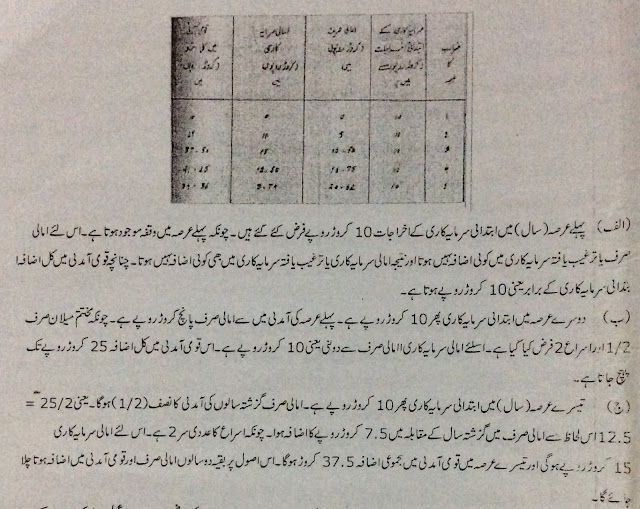 ضارب کا
سرمایہ کاری کے ابتدائی اخراجات
(کروڑ روپوں
امالی صرف (کروڑ روپوں میں
امالی سرمایہ کاری (کروڑ روپوں میں
میں کل
1 10 0 0
2 10 5 10
3 10 12.50 15 37.50
4 10 18.75 12.50 41.25
5 10 20.62
(الف) پہلے عرصہ (سال) میں ابتدائی سرمایہ کاری کے اخراجات 10 کروڑ روپے فرض کئے گئے ہیں۔ چونکہ پہلے عرصہ میں وقفہ موجود ہوتا ہے۔ اس لئے امالی
صرف یا ترغیب یافتہ سرمایہ کاری میں کوئی اضافہ نہیں ہوتا اور نتیجہ امالی سرمایہ کاری یا ترغیب یافتہ سرمایہ کاری میں بھی کوئی اضافہ نہیں ہوتا۔ چنانچہ قومی آمدنی میں کل اضافہ ا
بتدائی سرمایہ کاری کے برابر یعنی 10 کروڑ روپے ہوتا ہے۔
(ب) دوسرے عرصہ میں ابتدائی سرمایہ کاری پھر 10 کروڑ روپے ہے۔ پہلے عرصہ کی آمدنی میں سے امالی صرف پانچ کروڑ روپے ہے۔ چونکہ مختتم میلان صرف
1/2 اور اسراع 2 فرض کیا گیا ہے۔ اسلئے امالی سرمایہ کاری امالی صرف سے دوگنی یعنی 10 کروڑ روپے ہے۔ اس قومی آمدنی میں کل اضافہ 25 کروڑ روپے تک
پہنچ جاتا ہے۔
(ج) تیسرے عرصہ (سال) میں ابتدائی سرمایہ کاری پھر 10 کروڑ روپے ہے۔ امالی صرف گزشتہ سالوں کی آمدنی کا نصف (1/2) ہوگا۔ یعنی 25/2 =
12.5 اس لحاظ سے امالی صرف میں گزشتہ سال کے مقابلہ میں 7.5 کروڑ روپے کا اضافہ ہوا۔ چونکہ اسراع کا عددی سر 2 ہے۔ اس لئے امالی سرمایہ کاری
15 کروڑ روپے ہوگی اور تیسرے عرصہ میں قومی آمدنی میں مجموعی اضافہ 37.5 کروڑ ہوگا۔ اس اصول پر بقیہ دو سالوں امالی صرف اور قومی آمدنی میں اضافہ ہوتا چلا
جائے گا۔